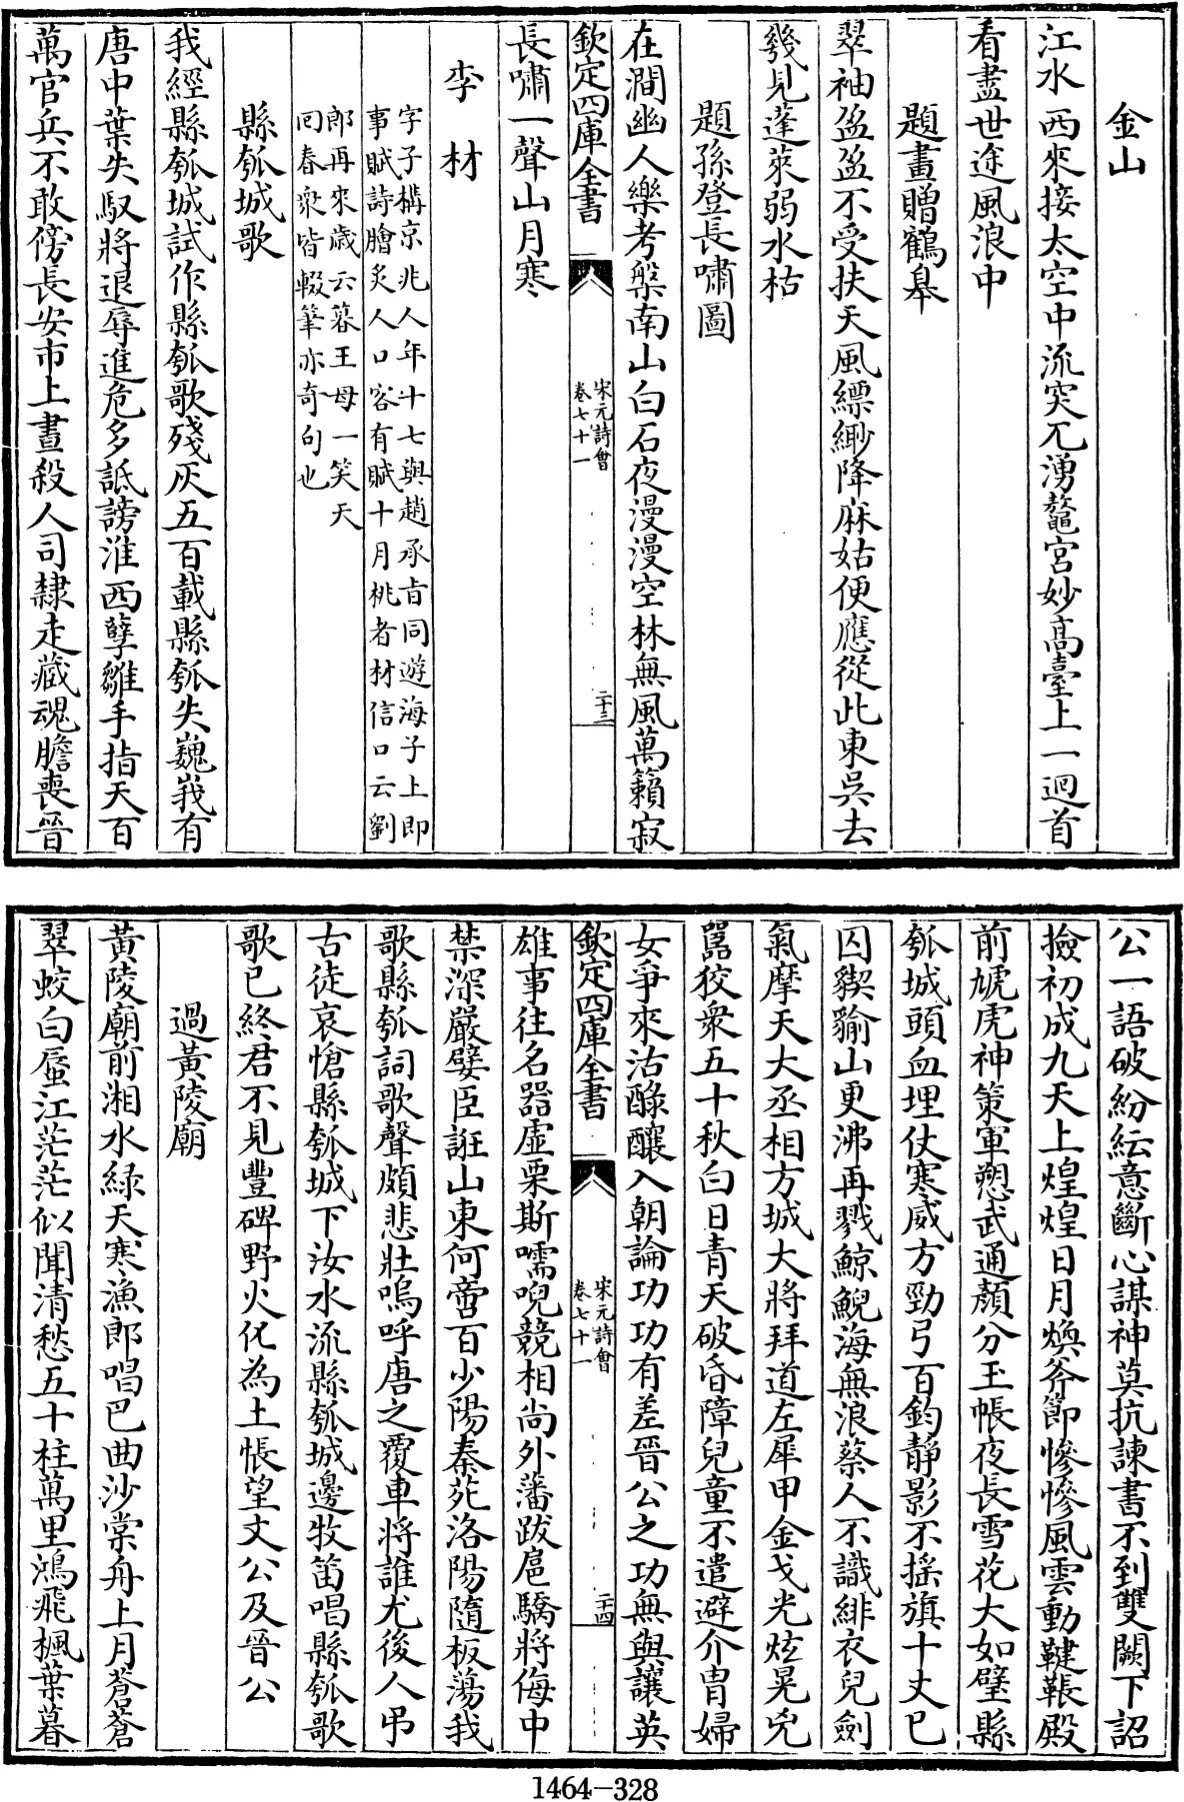 金山
江水西來接太空中流突兀湧鼇宮妙高臺上一迴首
看盡世途風浪中
題畫贈鶴皋
翠袖盈盈不受扶天風縹緲降麻姑便應從此東吳去
幾見蓬萊弱水枯
題孫登長嘯圖
在澗幽人樂考槃南山白石夜漫漫空林無風萬籟寂
欽定四庫全書
宋元詩會
卷七十一
二十三
長嘯一聲山月寒
李材
字子構京兆人年十七與趙承旨同遊海子上即
事賦詩膾炙人口客有賦十月桃者材信口云劉
郎再來歲云暮王母一笑天
回春衆皆輟筆亦奇句也
縣瓠城歌
我經縣瓠城試作縣瓠歌殘灰五百載縣瓠失巍峩有
唐中葉失馭將退辱進危多詆謗淮西孽雛手指天百
萬官兵不敢傍長安市上晝殺人司隸走藏魂膽喪晉
公一語破紛紜意斷心謀神莫抗諫書不到雙闕下詔
撿初成九天上煌煌日月煥斧節慘慘風雲動鞬韔殿
前虓虎神策軍愬武通顏分玉帳夜長雪花大如璧縣
瓠城頭血埋仗寒威方勁弓百鈞靜影不揺旗十丈已
囚猰貐山更沸再戮鯨鯢海無浪蔡人不識緋衣兒劍
氣摩天大丞相方城大將拜道左犀甲金戈光炫晃兇
嚚狡衆五十秋白日青天破昏障兒童不遣避介胄婦
女爭來沽醁釀入朝論功功有差晉公之功無與讓英
欽定四庫全書
宋元詩會
卷七十一
二十四
雄事往名器虛栗斯嚅唲競相尚外藩跋扈驕將侮中
禁深嚴嬖臣誑山東何啻百少陽秦苑洛陽隨板蕩我
歌縣瓠詞歌聲頗悲壯嗚呼唐之覆車將誰尤後人弔
古徒哀愴縣瓠城下汝水流縣瓠城邊牧笛唱縣瓠歌
歌已終君不見豐碑野火化為土悵望文公及晉公
過黃陵廟
黃陵廟前湘水緑天寒漁郎唱巴曲沙棠舟上月蒼蒼
翠蛟白蜃江茫茫似聞清愁五十柱萬里鴻飛楓葉暮
1464-328